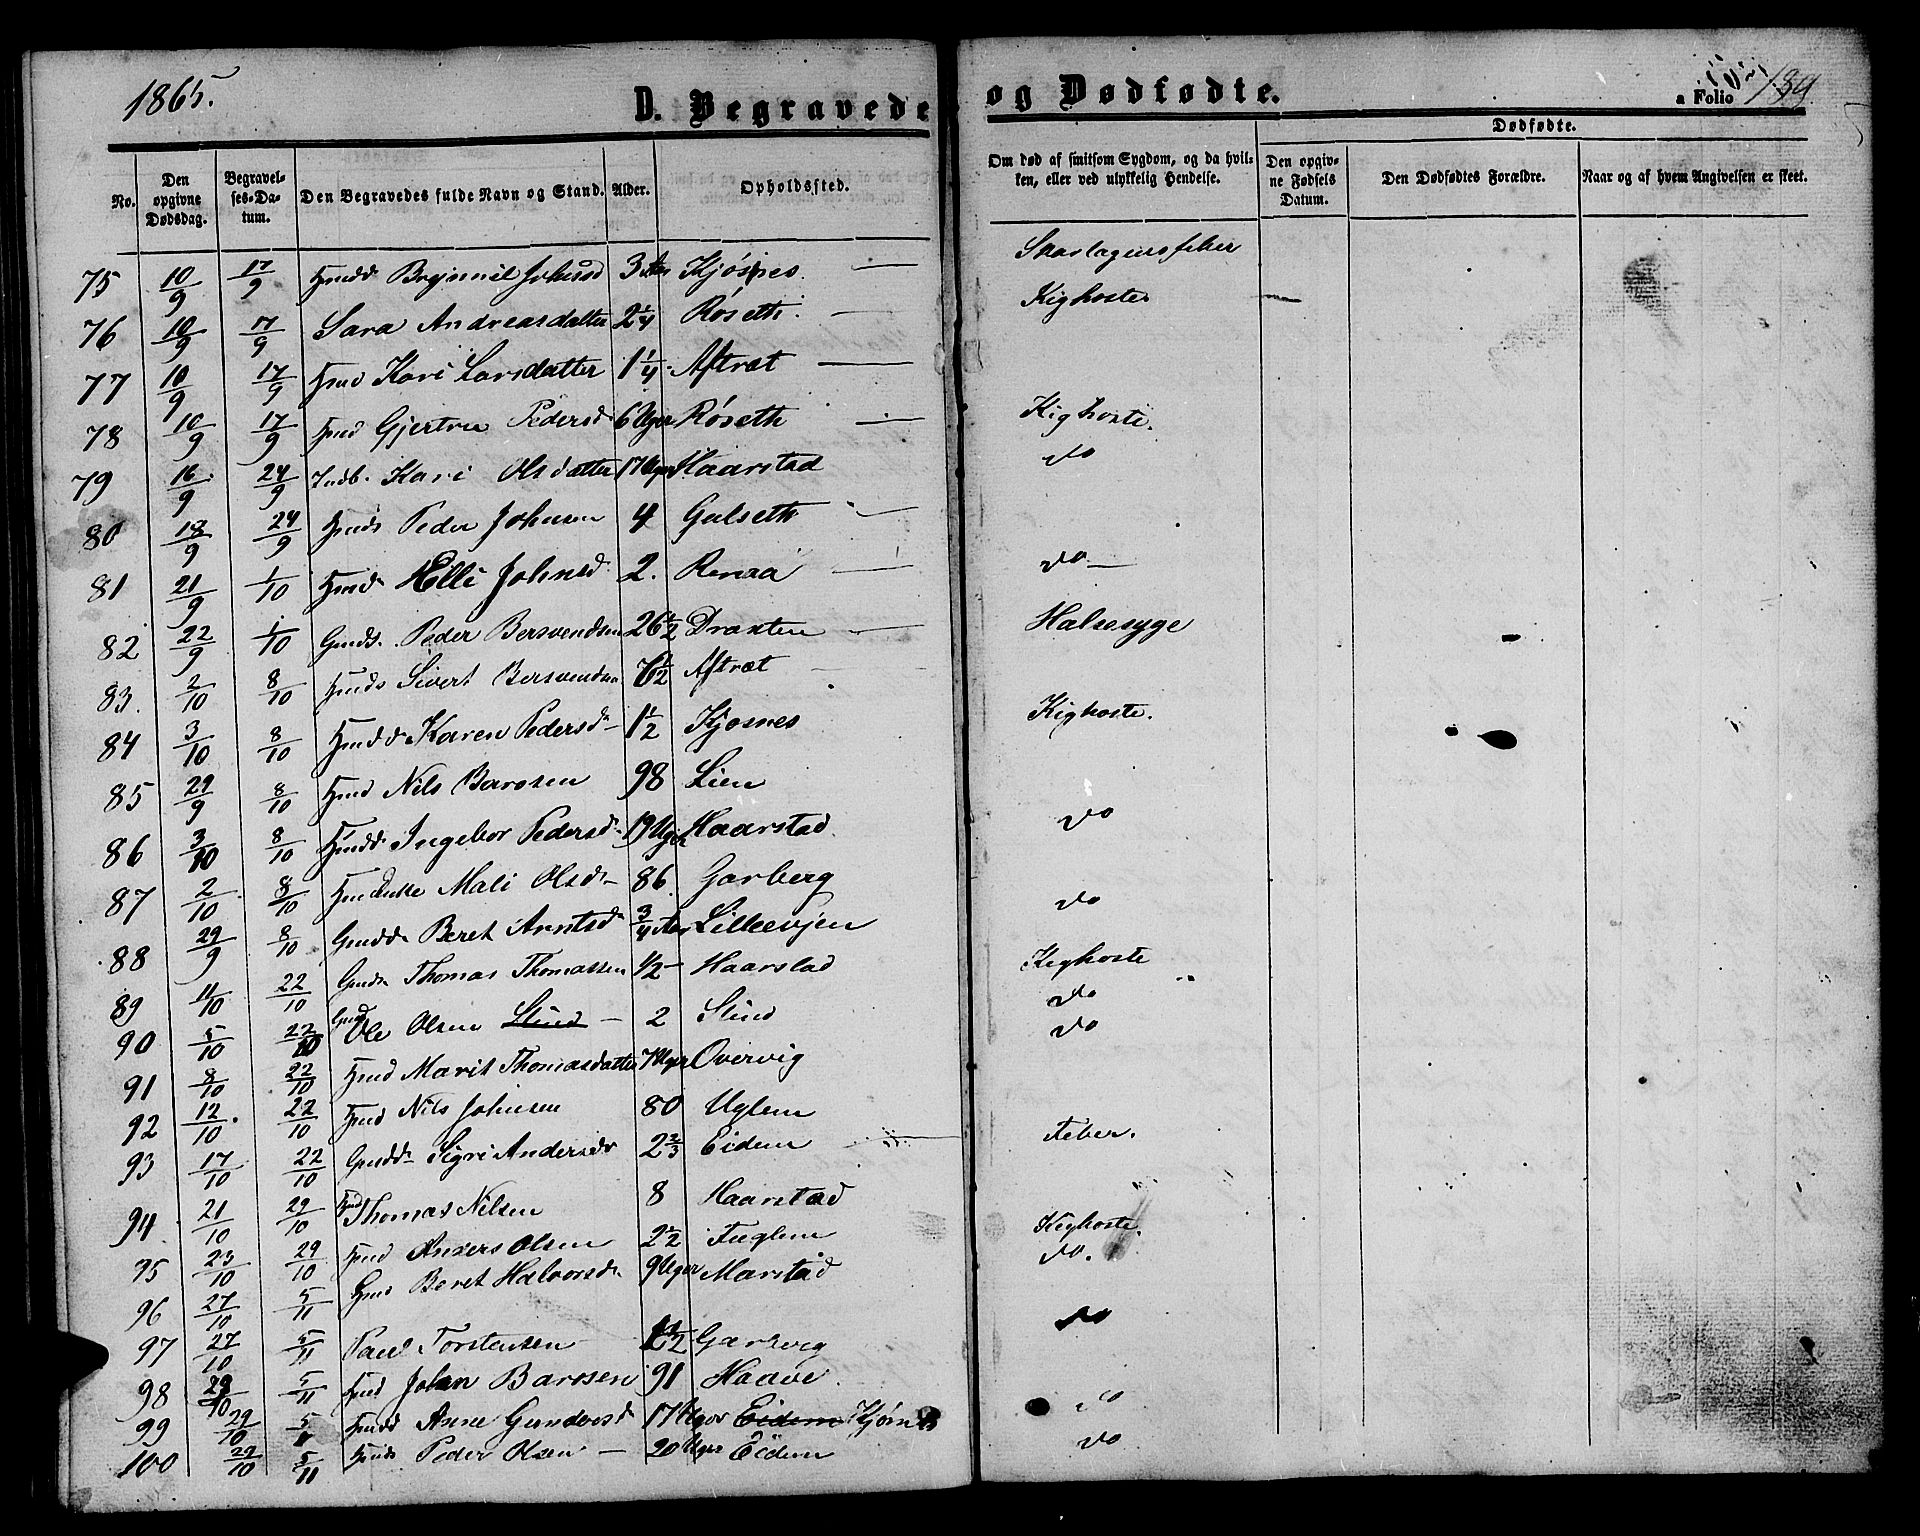 1865.
D. Begravede og Dødfødte.
a Folio 189
Dødfødte.
No. Den opgivne Dødsdag. Begravelses-Datum. Den Begravedes fulde Navn og Stand. Alder. Opholdsted. Om død af smitsom Sygdom, og da hvilken, eller ved ulykkelig Hendelse. Den opgivne Fødsels Datum. Den Dødfødtes Forældre. Naar og af hvem Angivelsen er skeet.
75 10/9 17/9 Brynnil Johnsd 3 Aar Kjøsnes — Skarlagensfeber
76 10/9 17/9 Sara Andreasdatter 2 1/4 Røseth — Kighoste
77 10/9 17/9 Kari Larsdatter 1 1/4 Aftræt —
78 10/9 17/9 Gjertru Pedersd 6 Uger Røseth — Kighoste.
79 16/9 24/9 Indb. Kari Olsdatter 17 Uger Haarstad do
80 18/9 24/9 Peder Johnsen 4 Gulseth —
81 21/9 1/10 Elli Johnsd 2. Renaa — do —
82 22/9 1/10 Gmds. Peder Bersvendsen 26 1/2 Draxten — Halsesyge
83. 2/10 8/10 Sivert Bersvendsn 7 1/2 Aftræt
84 3/10 8/10 Karen Pedersd 1 1/2 Kjosnes Kighoste.
85 29/9 8/10 Nils Barosen 98 Lien
86 3/10 8/10 Ingebor Pedersd 19 Uger Haarstad do
87 2/10 8/10 Mali Olsd 86. Garberg
88 29/9 8/10 Gmdd Beret Arntsd 3/4 Aar Lillevjen do
89 11/10 22/10 Gmds Thomas Thomassen 1/2 Haarstad Kighoste
90 5/10 22/10 Ole Olsen Stind — 2 Stind do
91 8/10 22/10 Marit Thomasdatter 7 Uger Overvig do
92 12/10 22/10 Nils Johnsen 80 Uglem
93 17/10 22/10 Gmdd Sigri Andersd 2 2/3 Eidem — Feber.
94 21/10 29/10 Thomas Nilsen 8 Haarstad
95 23/10 29/10 Anders Olsen 2 1/2 Fuglem Kighoste
96 27/10 5/11 Beret Halvorsd 9 Uger Marstad do.
97 27/10 5/11 Paul Torstensen 1 1/2 Garberg do
98 29/10 5/11 John Barosen 91 Haave
99 29/10 5/11 Anne Gundersd 17 Uger Eidem do
100 29/10 5/11 Peder Olsen — 20 Uger Eidem do